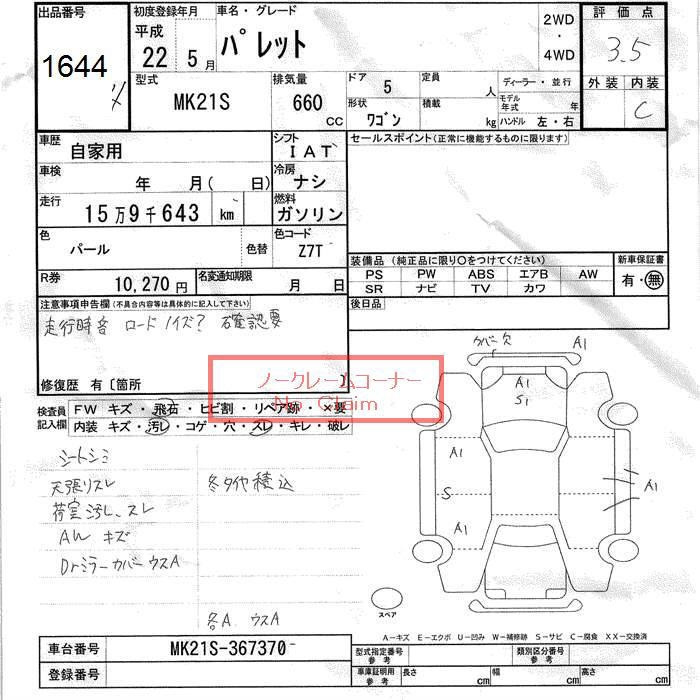 出品番号
1644
初度登録年月
平成
22年 5月
車名・グレード
パレット
2WD
・
4WD
評価点
3.5
外装 内装
C
型式
MK21S
排気量
660
CC
ドア 5
形状
ワゴン
定員
人
積載
kg
ディーラー・並行
モデル年式 年
ハンドル 左・右
車歴
自家用
シフト
IAT
セールスポイント(正常に機能するものに限ります)
車検
年 月( 日)
冷房
ナシ
走行
15万9千643 km
燃料
ガソリン
色
パール
色替
色コード
Z7T
装備品 (純正品に限り○をつけてください)
PS PW ABS エアB AW
SR ナビ TV カワ
新車保証書
有・無
R券
10,270円
名変通知期限
月 日
後日品
注意事項申告欄(不具合内容等は具体的に記入して下さい)
走行時音 ロードノイズ? 確認要
修復歴 有〔箇所 〕
ノークレームコーナー
No Claim
検査員記入欄
FW キズ・飛石・ヒビ割・リペア跡・×要
内装 キズ・汚レ・コゲ・穴・スレ・キレ・破レ
シートシミ
天張リスレ
冬タイヤ積込
荷室汚レ、スレ
AW キズ
Drミラーカバー ウスA
各A、ウスA
カバー欠
A1
A1
S1
A1
S
A1
A1
スペア
A−キズ E−エクボ U−凹み W−補修跡 S−サビ C−腐食 XX−交換済
車台番号
MK21S-367370
登録番号
型式指定番号
参考
類別区分番号
参考
車庫証明用
参考
長さ cm
幅 cm
高さ cm